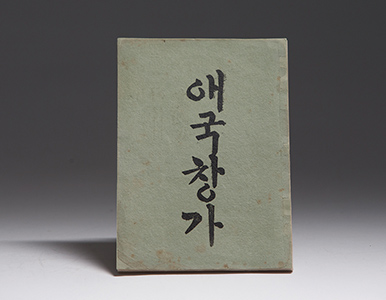 애국창가